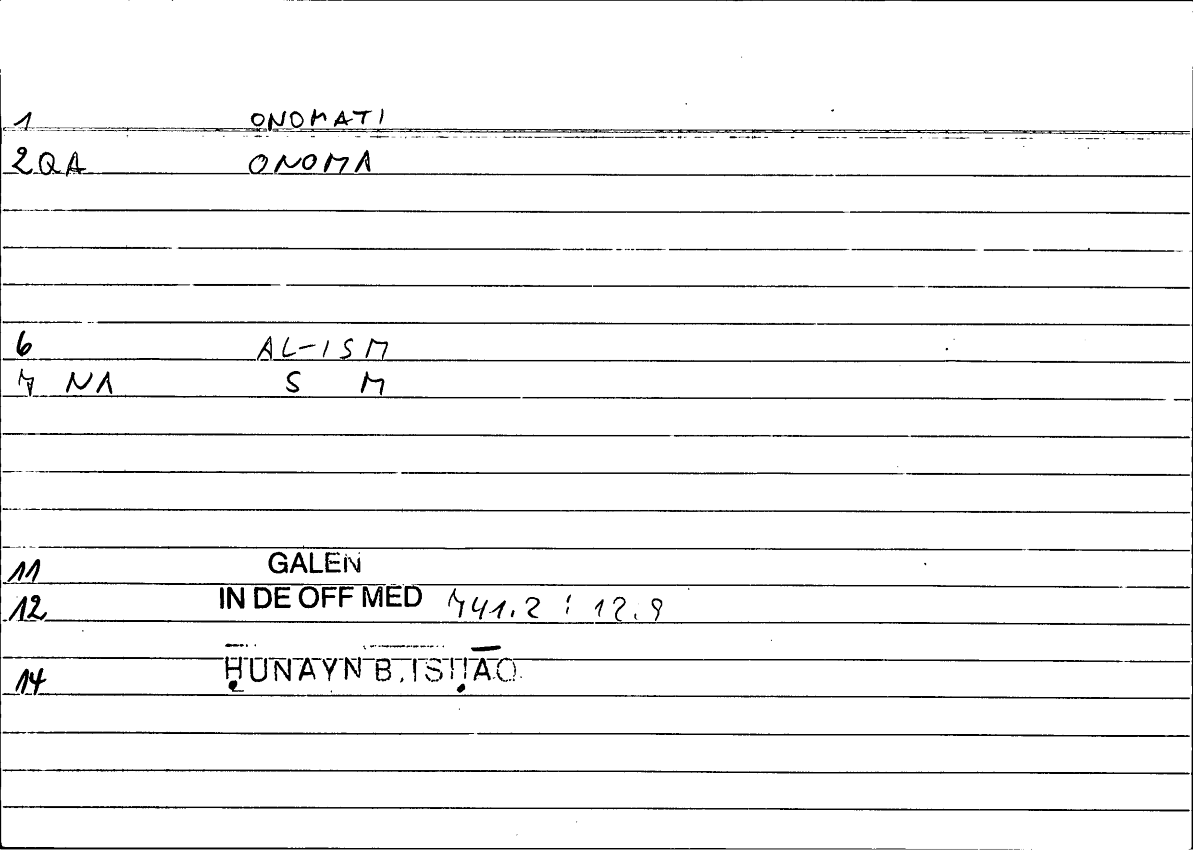 1 ONOMATI
2 QA ONOMA
6 AL-ISM
7 NA S M
11 GALEN
12 IN DE OFF MED 741.2 : 12.9
14 ḤUNAYN B. ISḤĀQ